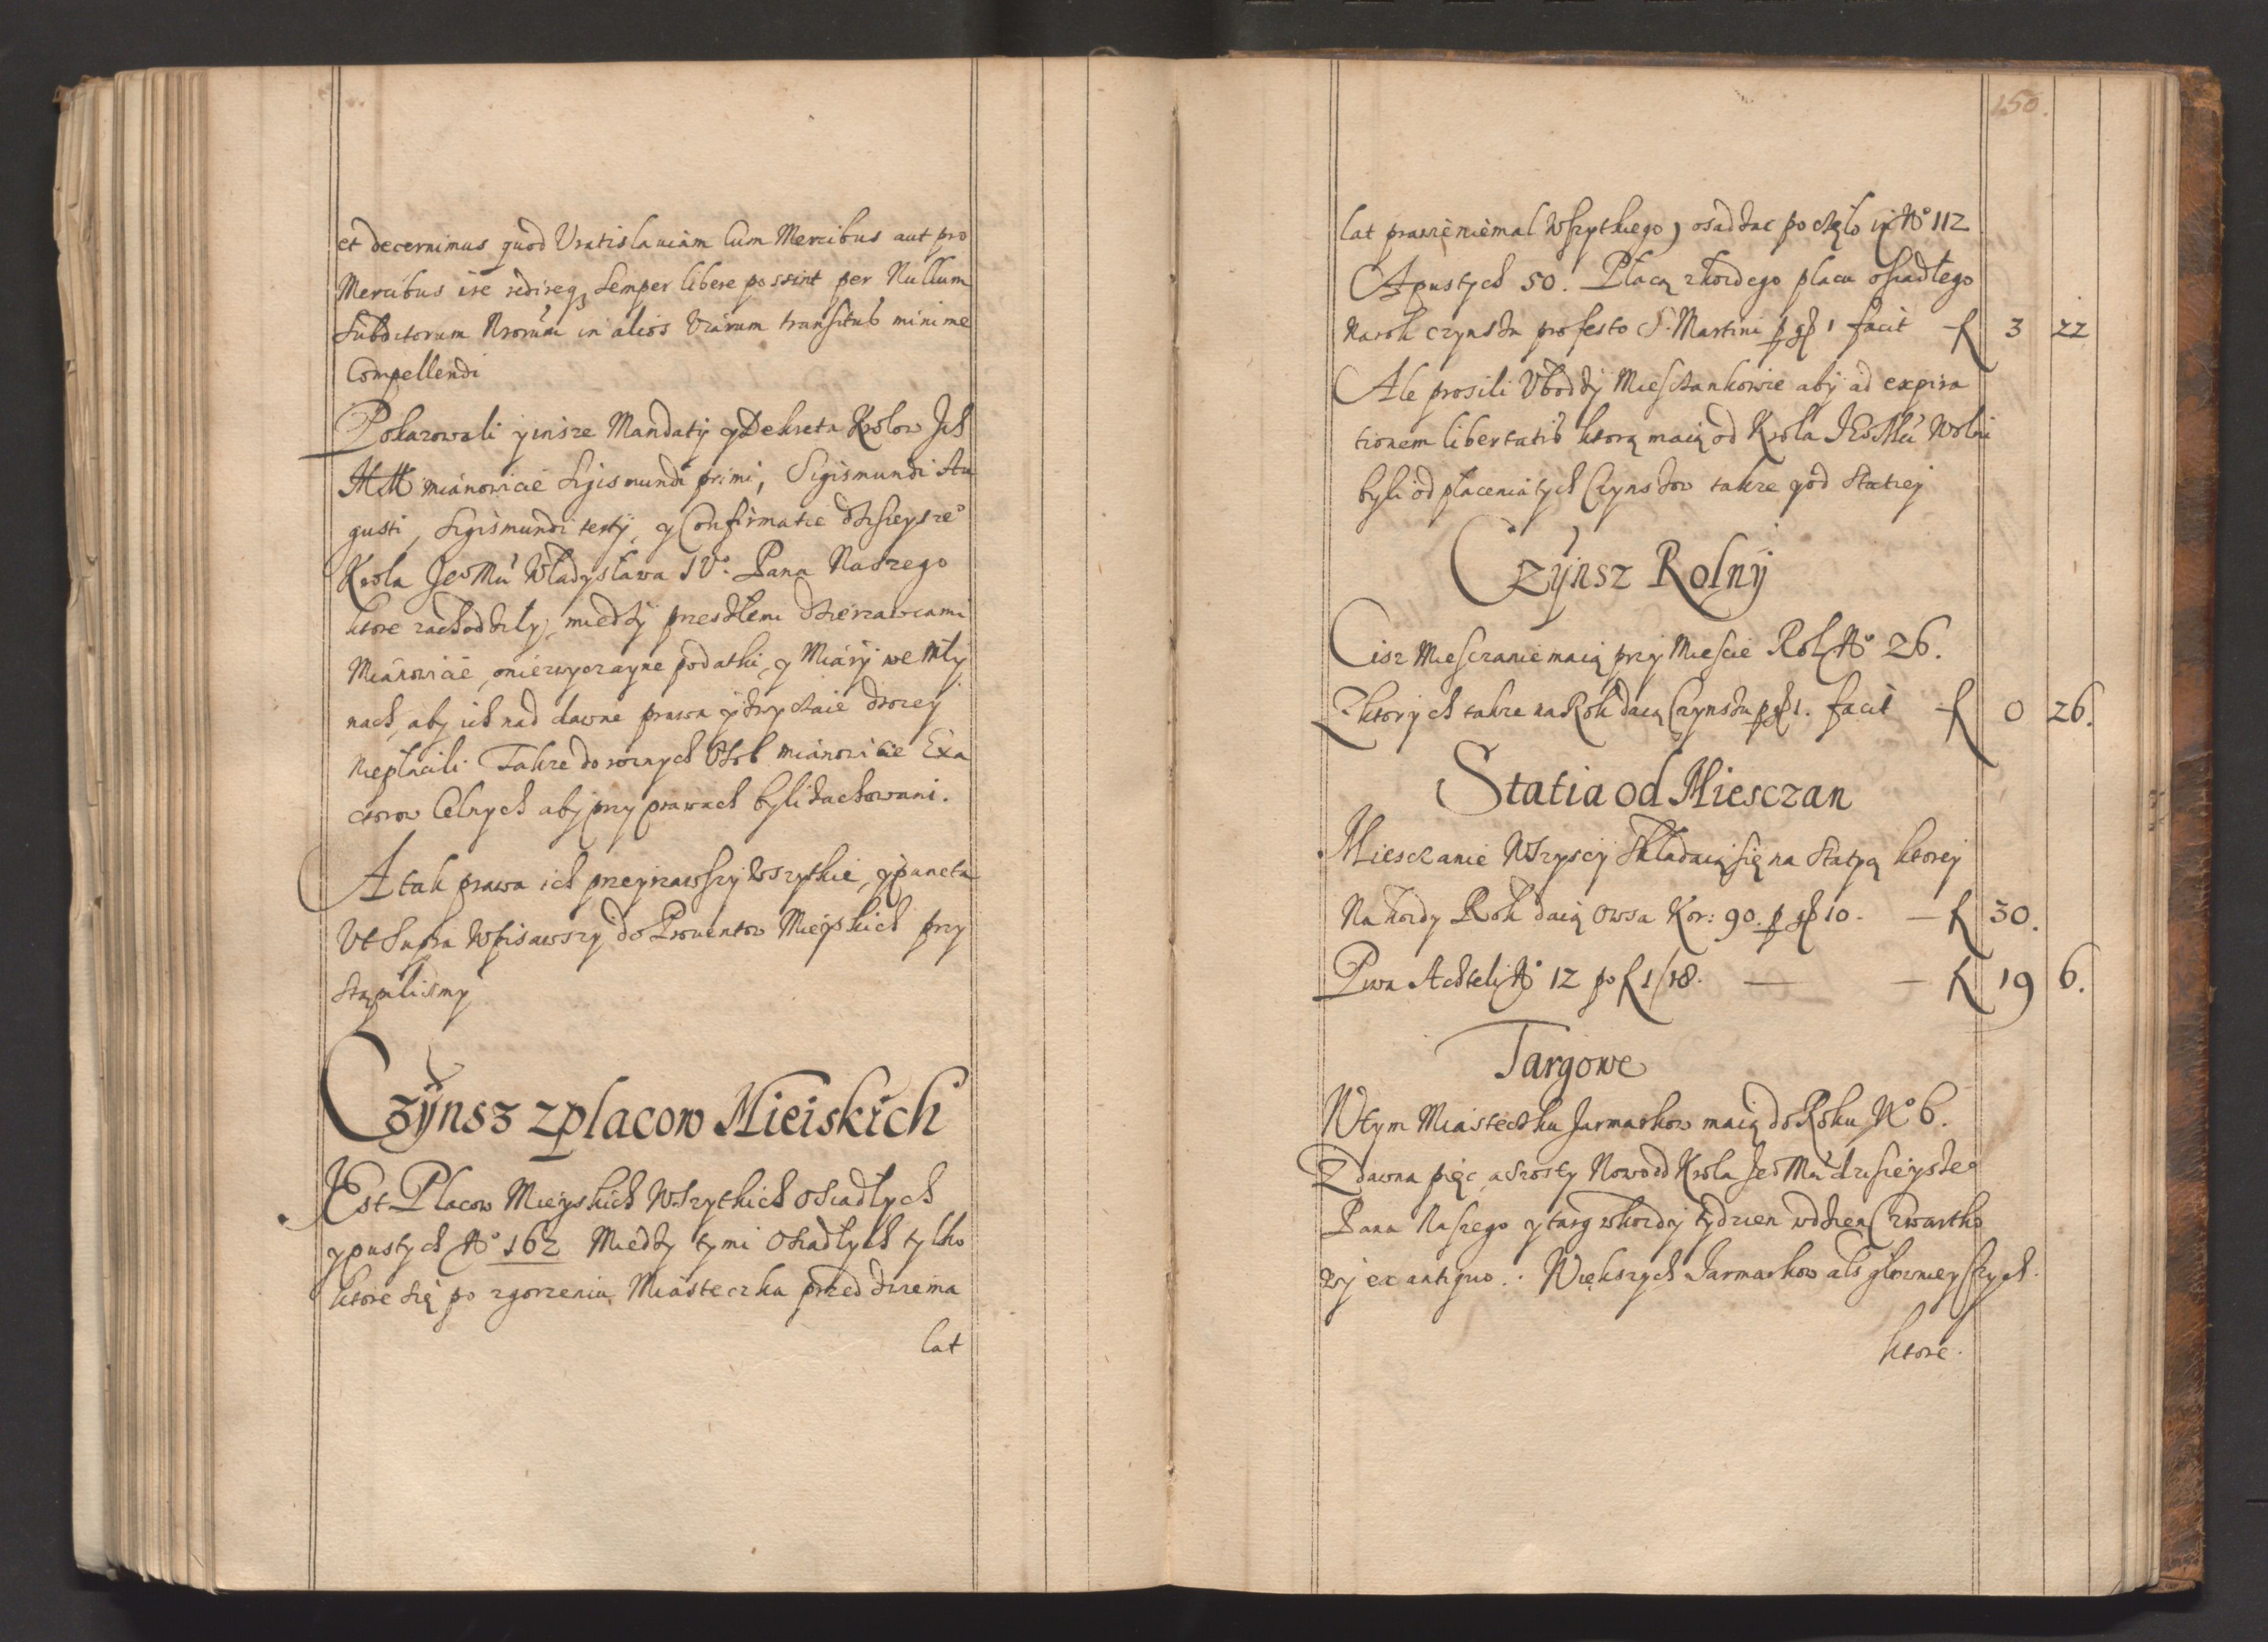 et decernimus quod Uratislauiam Cum Mercibus aut pro
Mercibus ire redireq3 Semper libere possint per Nullum
Subditorum Nrorum in alios Viarum transitus minime
Compellendi
Pokazowali y insze Mandaty y Dekreta Krolow Ich
MM mianowicie Sigismundi primi, Sigismundi Au
gusti, Sigismundi tertij, y Confirmatie dzisieysze°
Krola Je° Mci Władysława IV°. Pana Naszego
ktore zachodziły, miedzy przeszłemi dzierzawcami
Mianowicie, o niezwyczayne podatki, y Miary we Mły
nach, aby ich nad dawne prawa y zwyczaie drozey
Niepłacili. Takze do roznych Osob mianowicie Exa
ctorow Celnych aby przy prawach byli zachowani.
A tak prawa ich przeyrzawszy wszytkie, y puncta
Ut Supra Wpisawszy do Prouentow Mieyskich przy
stąpilismy
Czynsz z placow Mieiskich
Jest Placow Mieyskich Wszytkich Osiadłych
y pustych N° 162 Miedzy tymi Osiadłych tylko
ktore się po zgorzeniu Miasteczka przed dziema
lat
150.
lat prawie niemal Wszytkiego, osadzac poczęło in N° 112
A pustych 50. Płacą z kozdego placu osiadłego
Na rok czynszu pro festo S. Martini p gl 1 facit f 3 22
Ale prosili Ubodzy Miesczankowie aby ad expira
tionem libertatis ktorą maią od Krola Je° Mci Wolni
byli od płacenia tych Czynszow takze y od Staciej
Czynsz Rolny
Cisz Miesczanie maią przy Miescie Rol N° 26.
Z ktorych takze na Rok daią Czynszu p gl 1. facit f 0 26.
Statia od Miesczan
Miesczanie Wszyscy Składaią się na Statyą ktorej
Na kozdy Rok daią Owsa Kor: 90. p gl 10. — f 30.
Piwa Achteli N° 12 po f 1/18. — — f 19 6.
Targowe
W tym Miasteczku Jarmarkow maią do Roku N° 6.
Z dawna pięc, a szosty Nowo od Krola Je° Mci dzisieysze°
Pana Naszego y targ w kozdy tydzien w dzien Czwartko
wy ex antiquo.: Większych Jarmarkow als głownieyszych.
ktore.